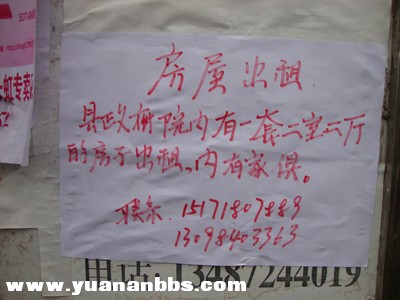 房屋出租
县政府院内有一套二室二厅
的房子出租、内有家具。
联系. 15171807889
13098403363
电话:13487244019
www.yuananbbs.com